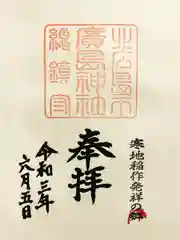 廣島神社
総鎮守
寒地稲作発祥の
奉拝
令和三年
六月五日